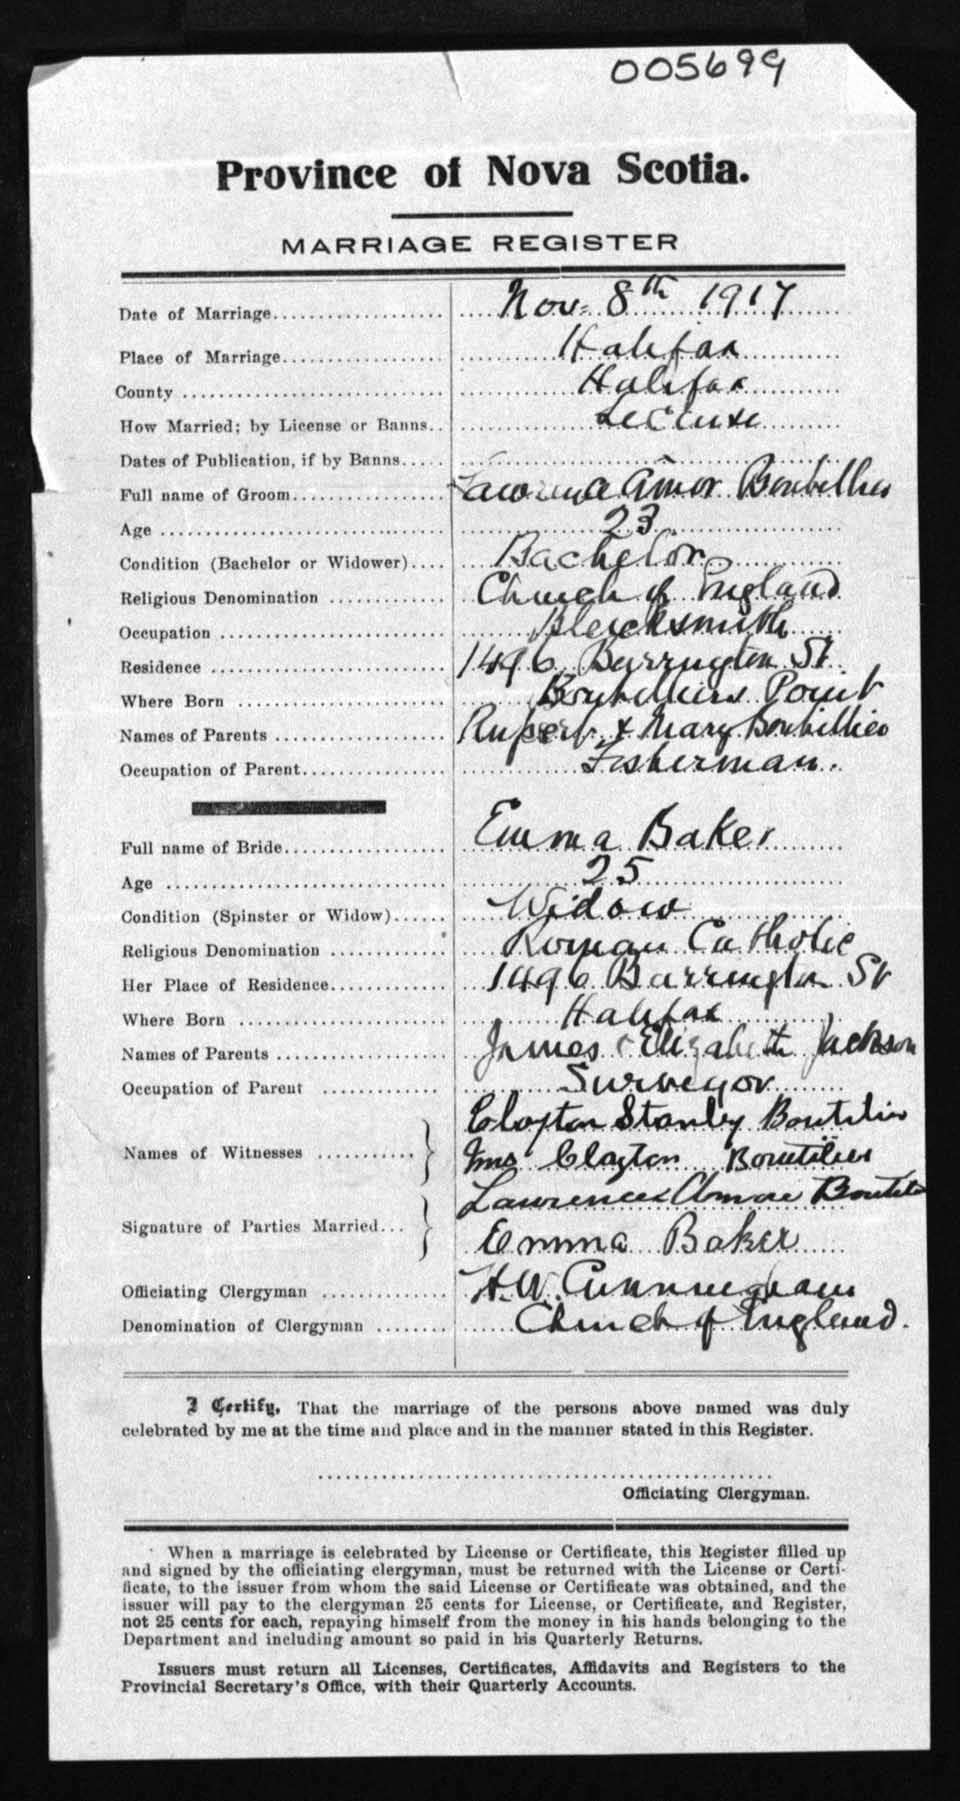 005699
Province of Nova Scotia.
MARRIAGE REGISTER
Date of Marriage Nov. 8th 1917
Place of Marriage Halifax
County Halifax
How Married; by License or Banns License
Dates of Publication, if by Banns
Full name of Groom Lawrence Amor Boutillier
Age 23
Condition (Bachelor or Widower) Bachelor
Religious Denomination Church of England
Occupation Blacksmith
Residence 1496 Barrington St.
Where Born Boutilliers Point
Names of Parents Rupert & Mary Boutillier
Occupation of Parent Fisherman.
Full name of Bride Emma Baker
Age 25
Condition (Spinster or Widow) Widow
Religious Denomination Roman Catholic
Her Place of Residence 1496 Barrington St
Where Born Halifax
Names of Parents James & Elizabeth Jackson
Occupation of Parent Surveyor
Clayton Stanley Boutilier
Names of Witnesses Mrs Clayton Boutilier
Lawrence Amor Boutilier
Signature of Parties Married Emma Baker
Officiating Clergyman H.W. Cunningham
Denomination of Clergyman Church of England.
I Certify, That the marriage of the persons above named was duly
celebrated by me at the time and place and in the manner stated in this Register.
Officiating Clergyman.
When a marriage is celebrated by License or Certificate, this Register filled up
and signed by the officiating clergyman, must be returned with the License or Certi-
ficate, to the issuer from whom the said License or Certificate was obtained, and the
issuer will pay to the clergyman 25 cents for License, or Certificate, and Register,
not 25 cents for each, repaying himself from the money in his hands belonging to the
Department and including amount so paid in his Quarterly Returns.
Issuers must return all Licenses, Certificates, Affidavits and Registers to the
Provincial Secretary's Office, with their Quarterly Accounts.